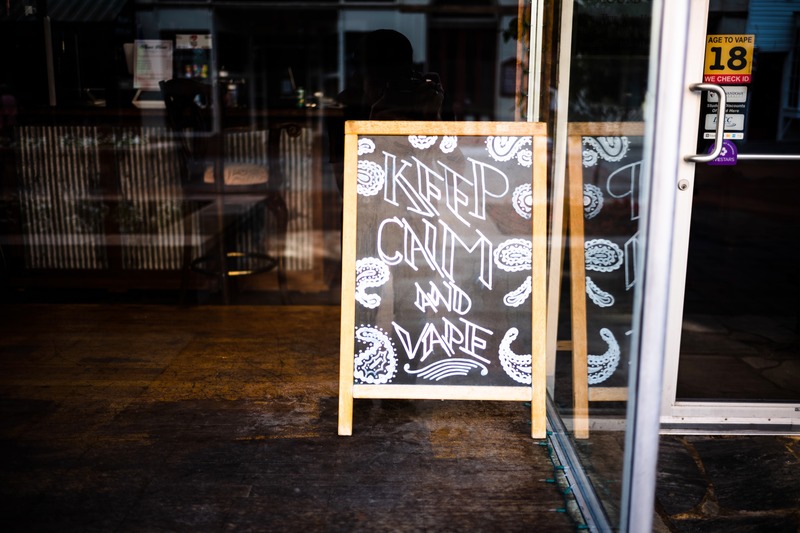 KEEP
CALM
AND
VAPE
AGE TO VAPE
18
WE CHECK ID